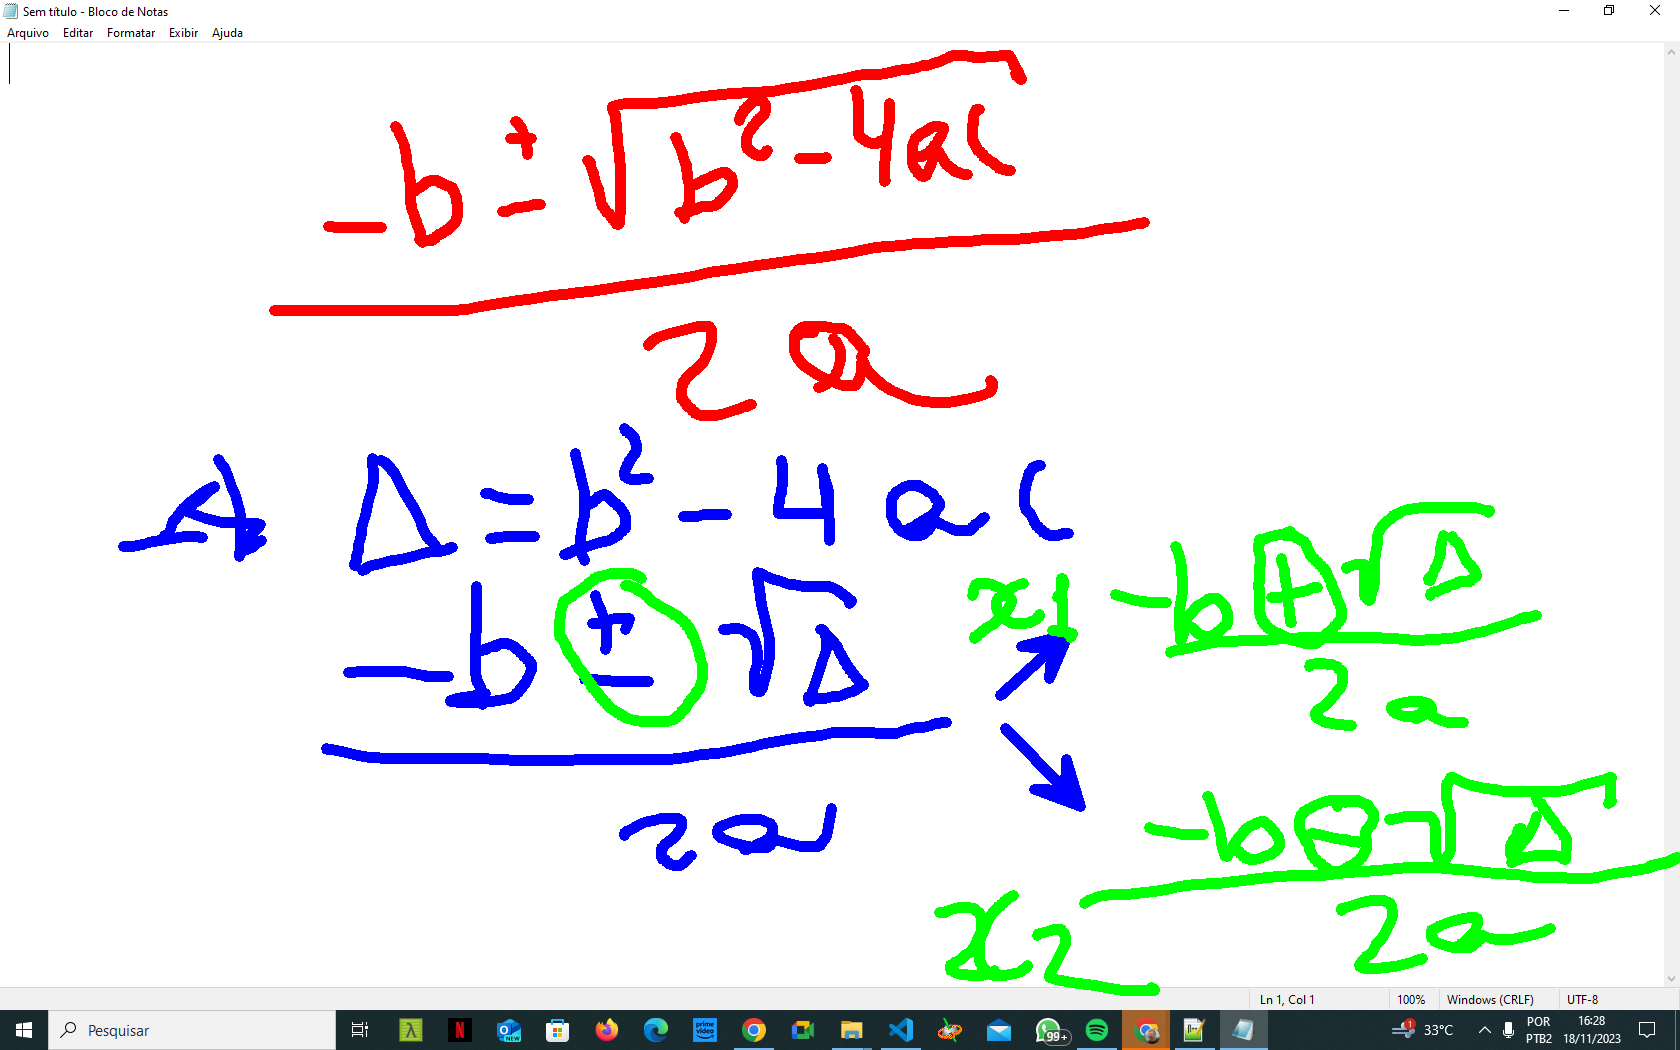 Sem título - Bloco de Notas
Arquivo Editar Formatar Exibir Ajuda
-b ± √b² - 4ac
2a
Δ = b² - 4ac
-b ± √Δ
2a
x1 -b + √Δ
2a
-b - √Δ
x2 2a
Ln 1, Col 1 100% Windows (CRLF) UTF-8
Pesquisar
NEW
prime video
99+
1
33°C
POR
PTB2
16:28
18/11/2023